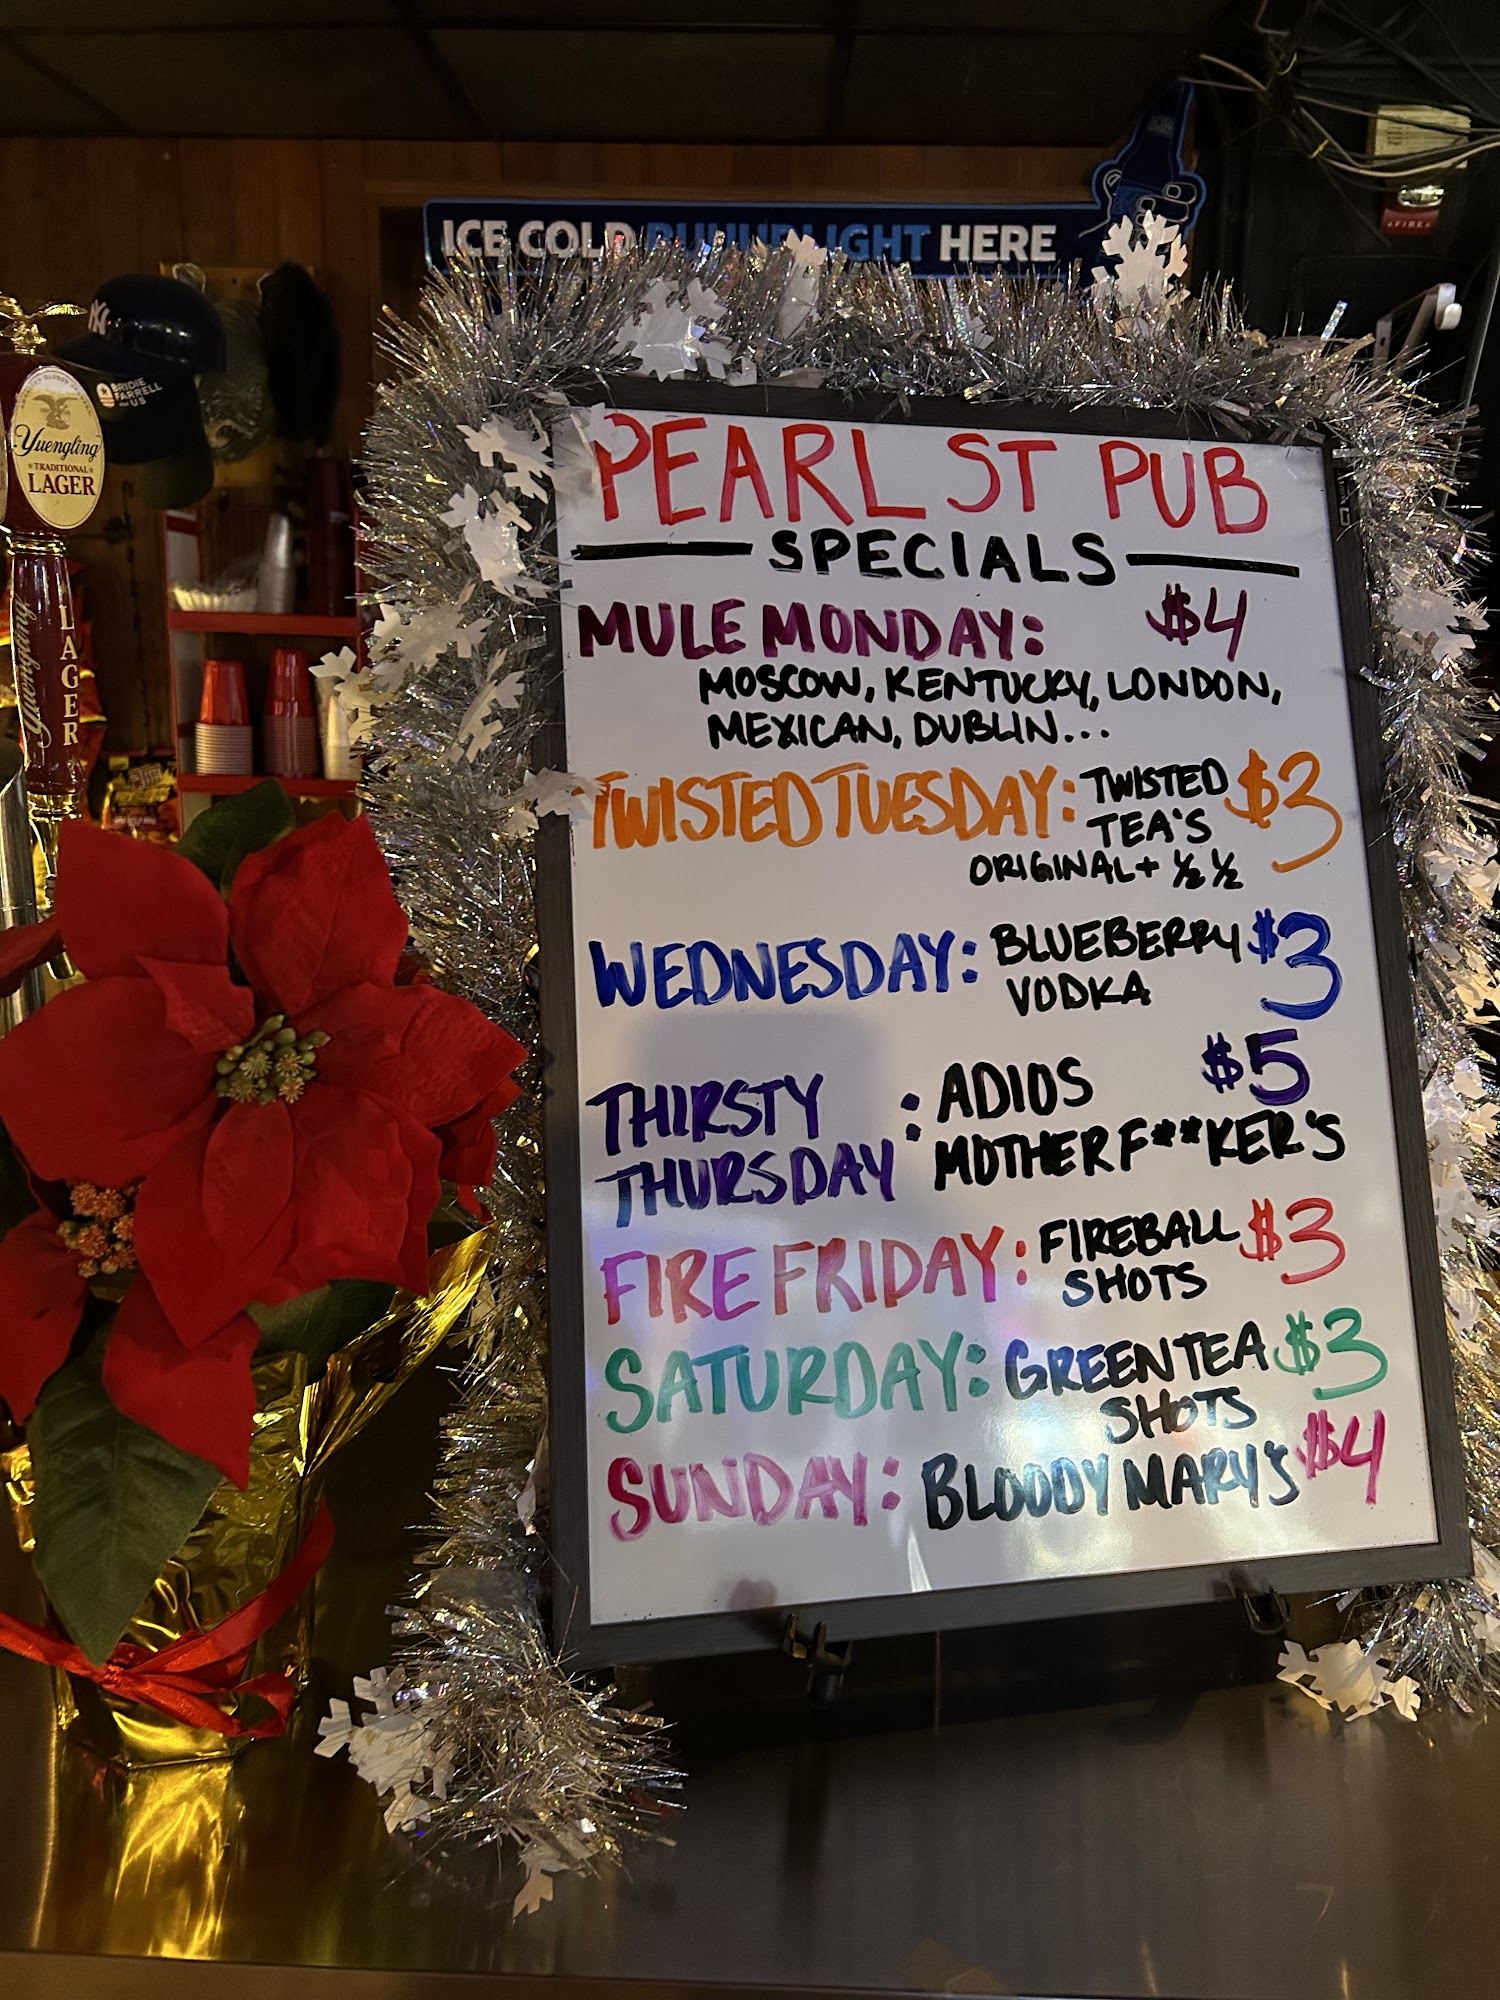 ICE COLD BUUUD LIGHT HERE
FIRE
NY
BRIDIE
FARRELL
US
Yuengling
TRADITIONAL
LAGER
Yuengling
LAGER
PEARL ST PUB
SPECIALS
MULE MONDAY: $4
MOSCOW, KENTUCKY, LONDON,
MEXICAN, DUBLIN...
TWISTED TUESDAY: TWISTED $3
TEA'S
ORIGINAL + ½ ½
WEDNESDAY: BLUEBERRY $3
VODKA
THIRSTY THURSDAY : ADIOS $5
MOTHERF**KER'S
FIRE FRIDAY: FIREBALL $3
SHOTS
SATURDAY: GREEN TEA $3
SHOTS
SUNDAY: BLOODY MARY'S $4